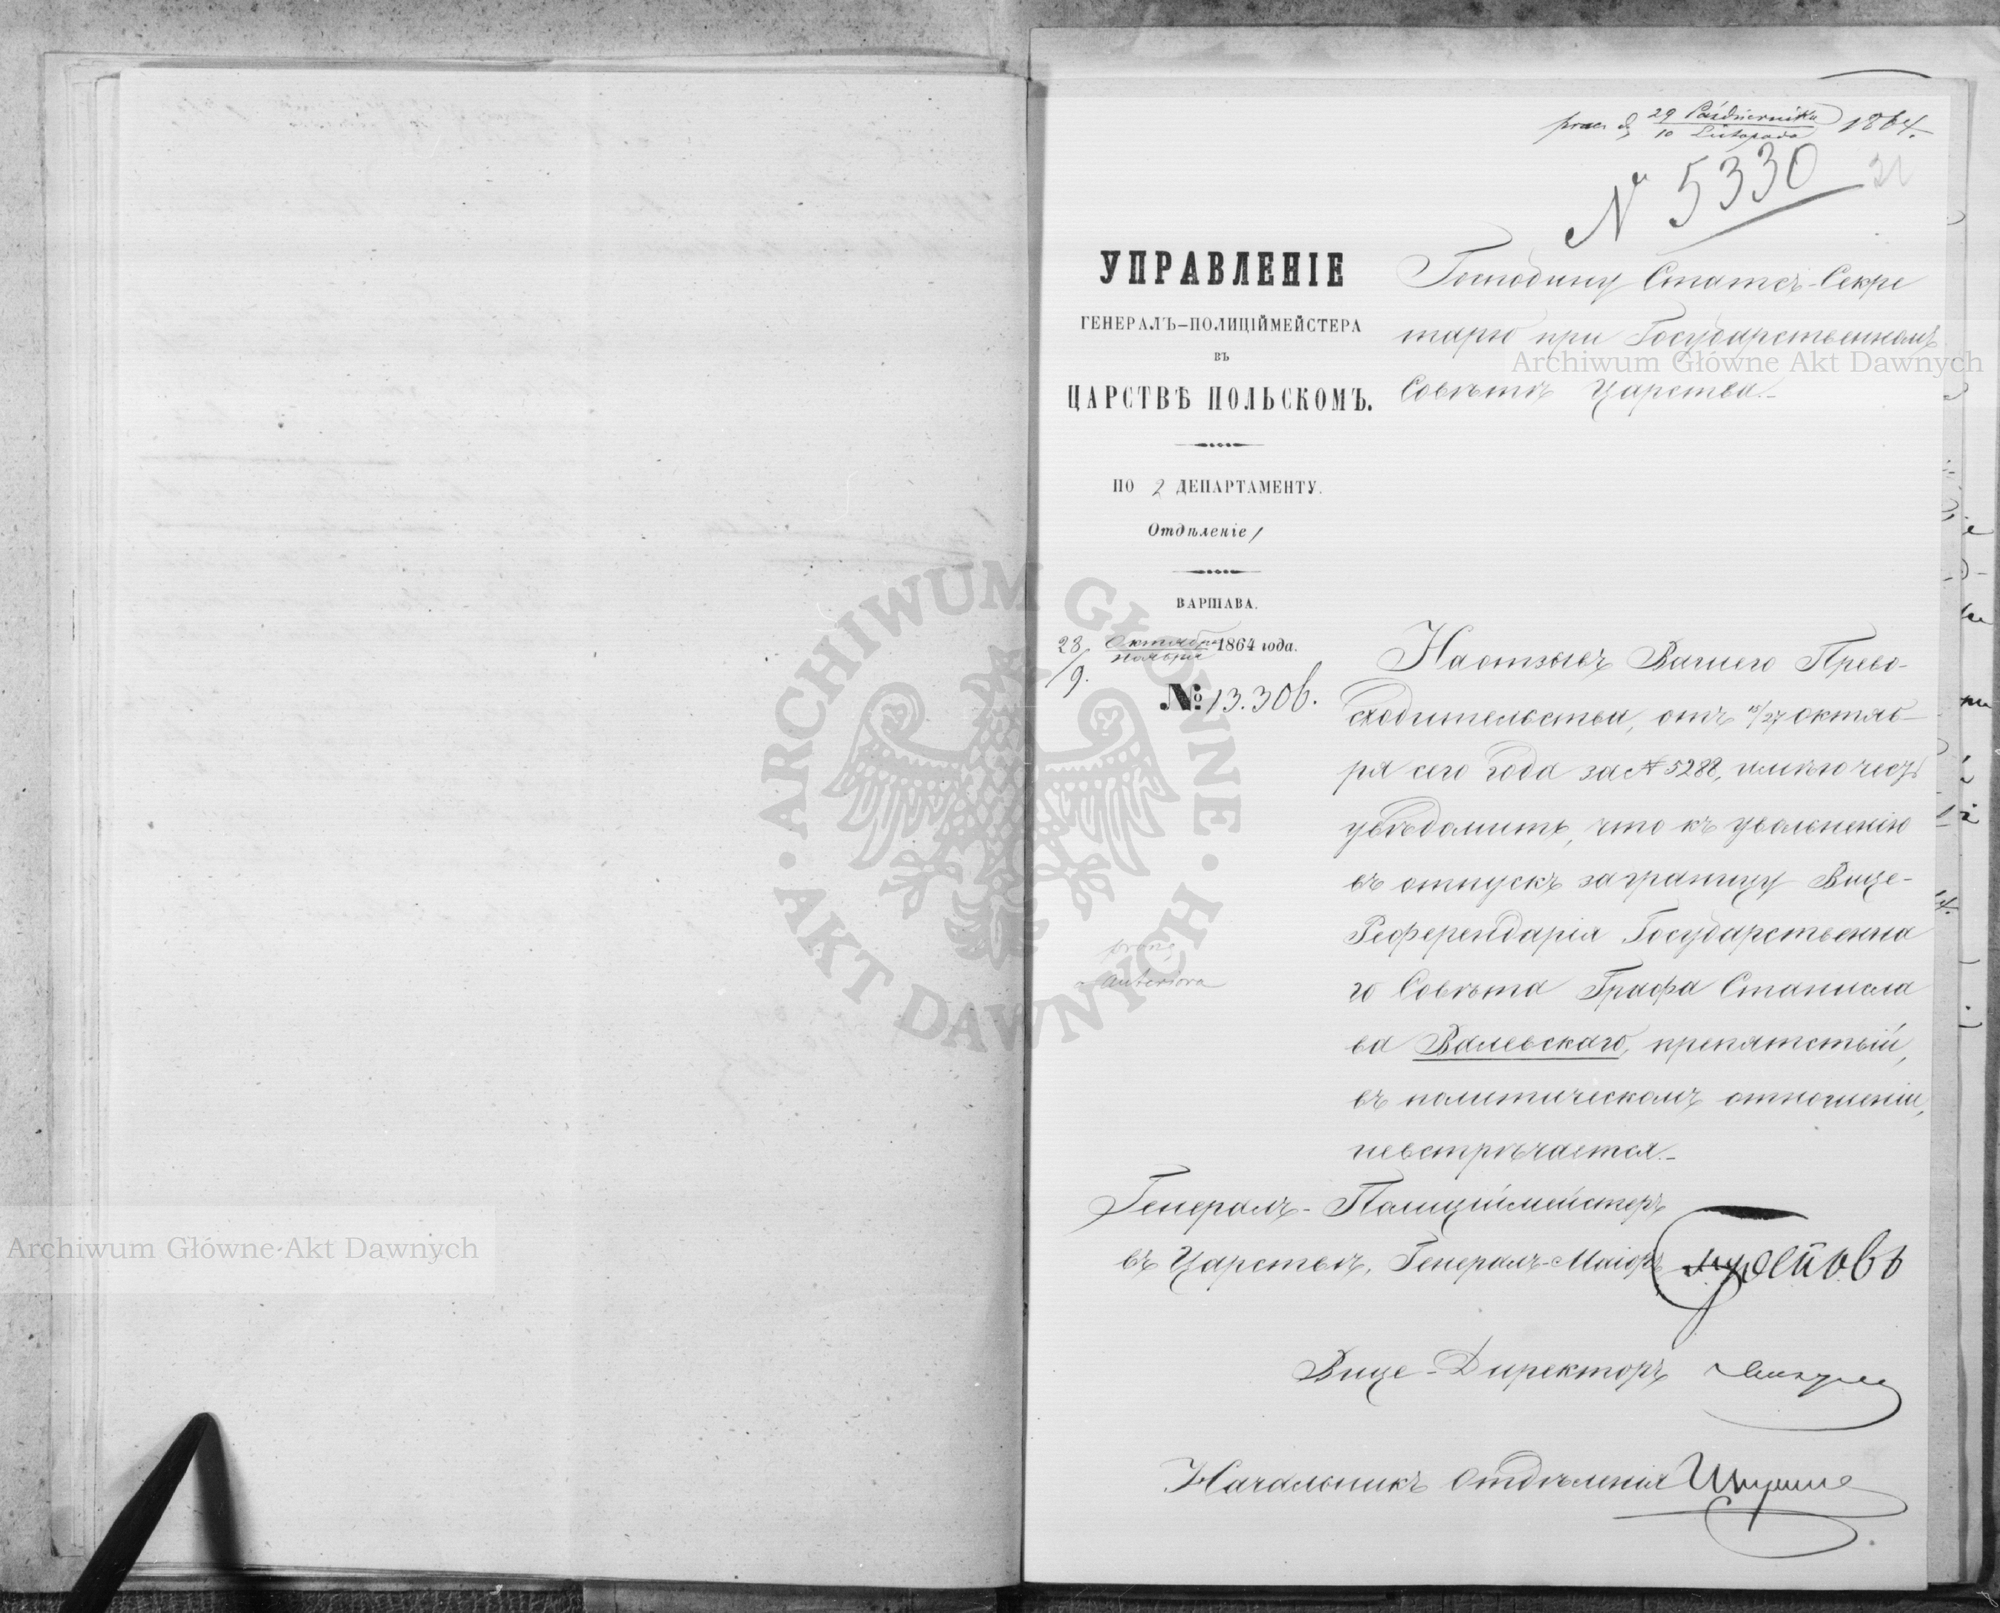 29 Października
10 Listopada 1864.
№ 5330
31
УПРАВЛЕНІЕ
ГЕНЕРАЛЪ-ПОЛИЦІЙМЕЙСТЕРА
ВЪ
ЦАРСТВѢ ПОЛЬСКОМЪ.
ПО 2 ДЕПАРТАМЕНТУ.
Отдѣленіе 1
ВАРШАВА.
28 Октября
9. Ноября 1864 года.
№ 13.306.
Господину Статсъ-Секре
тарю при Государственномъ
Совѣтѣ Царства.
На отзывъ Вашего Прево-
сходительства, отъ 15/27 октяб-
ря сего года за № 5288, имѣю честь
увѣдомить, что къ увольненію
въ отпускъ заграницу Вице-
Референдарія Государственна
го Совѣта Графа Станисла
ва Валевскаго, препятствій,
въ политическомъ отношеніи,
невстрѣчается.
anteriora
Генералъ-Полиціймейстеръ
въ Царствѣ, Генералъ-Маіоръ
Вице-Директоръ
Начальникъ Отдѣленія
Archiwum Główne Akt Dawnych
Archiwum Główne Akt Dawnych
ARCHIWUM GŁÓWNE AKT DAWNYCH